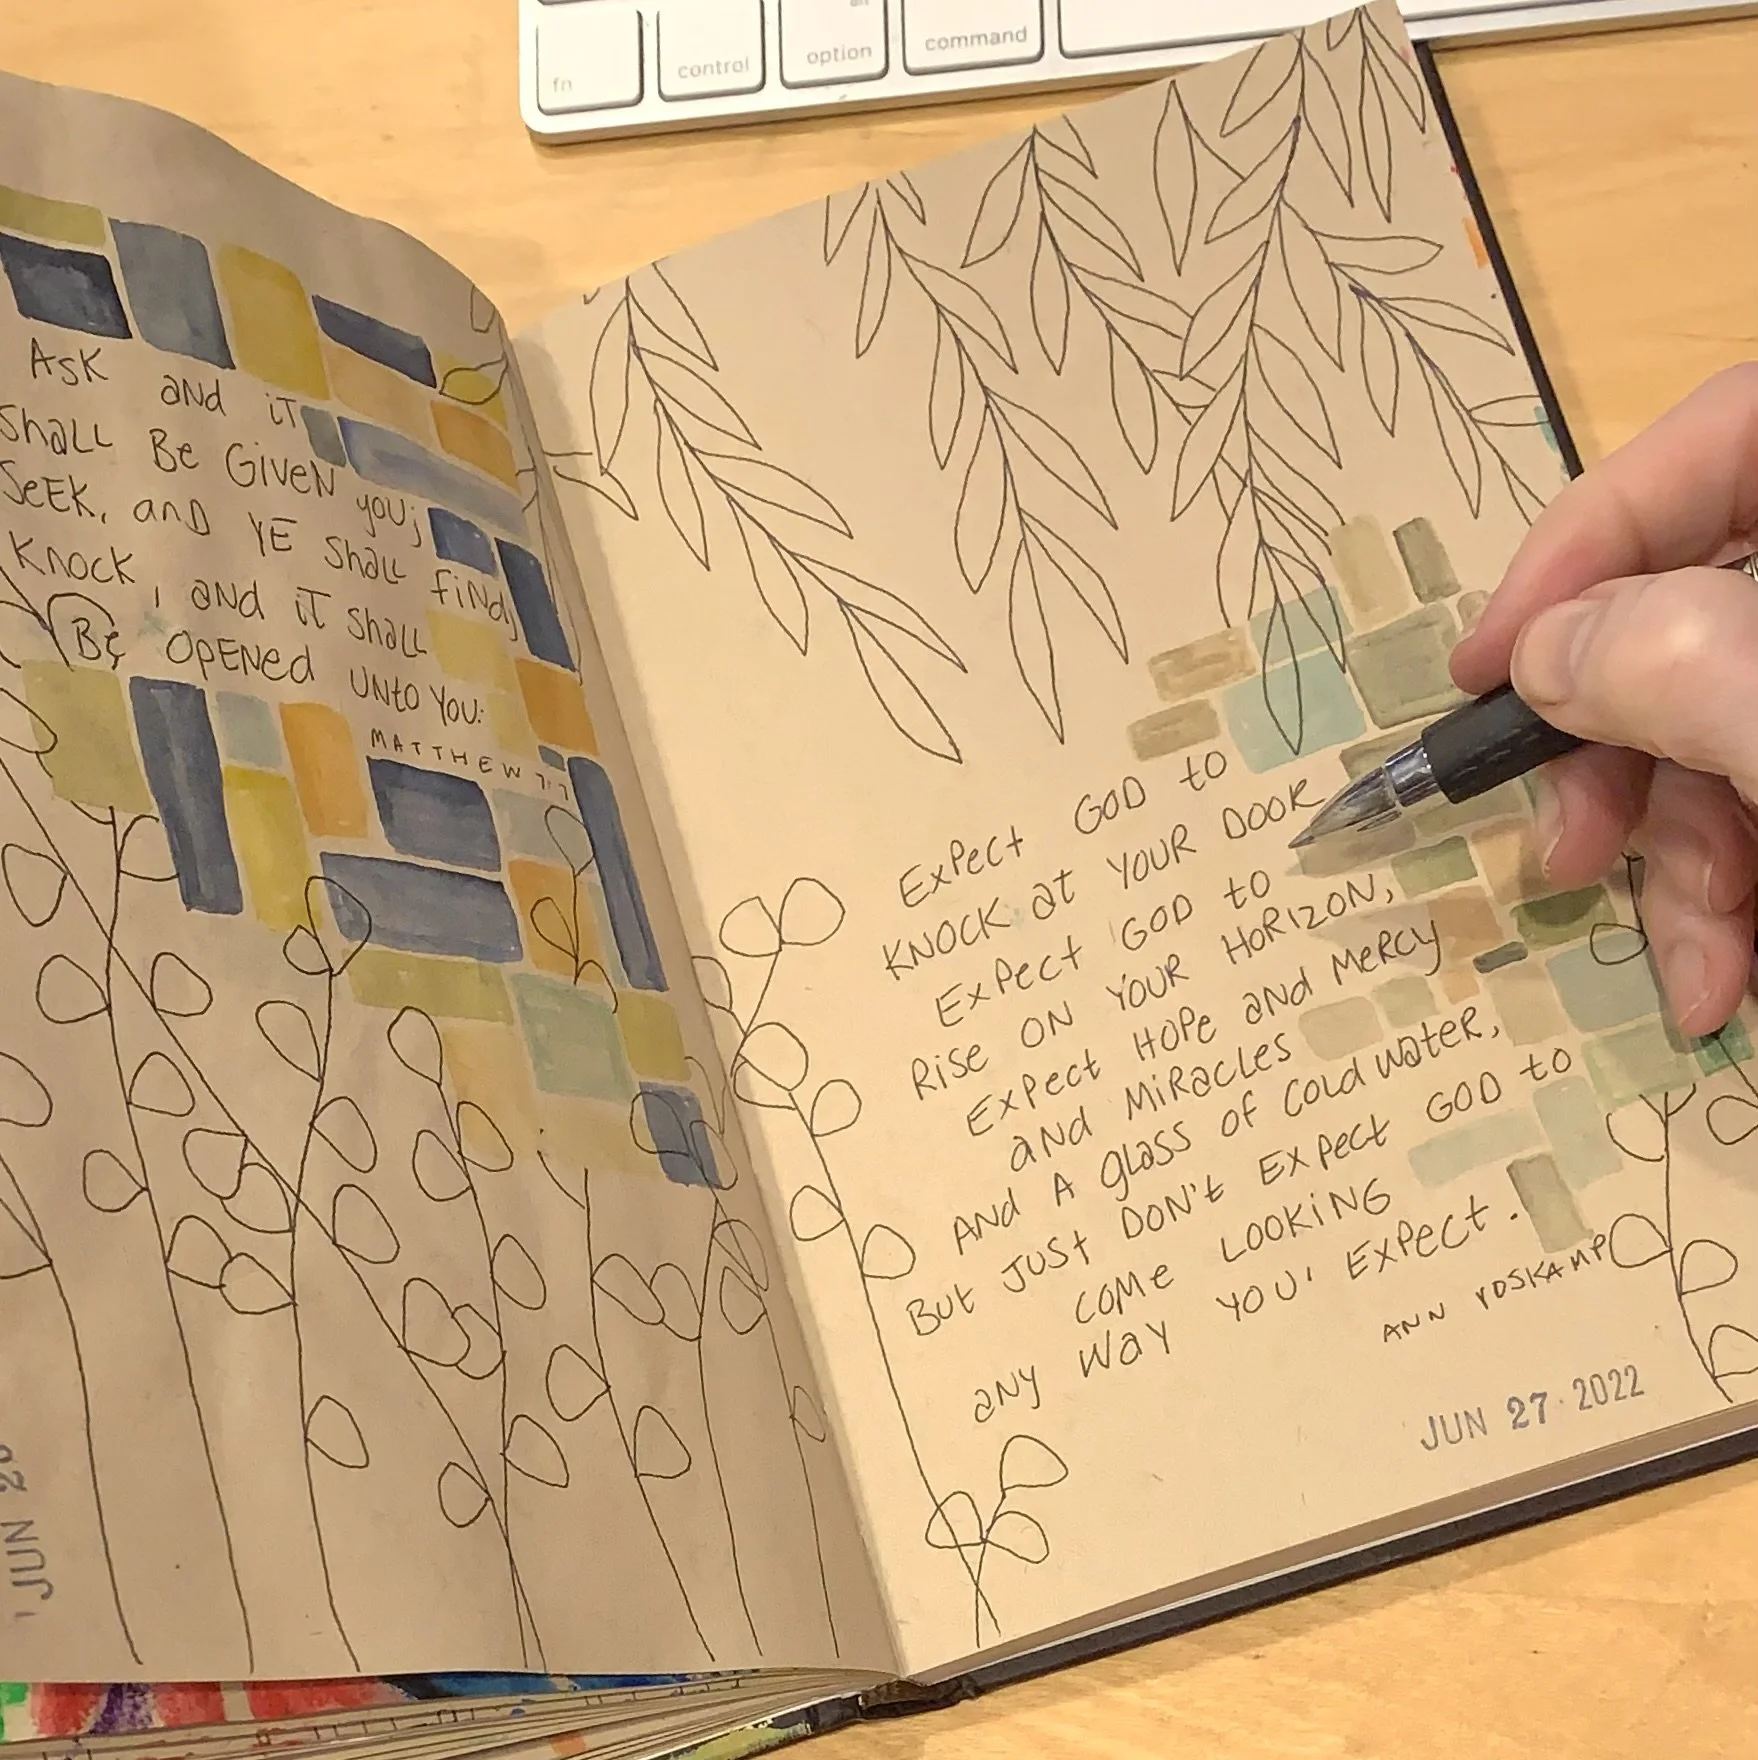 fn
control
alt
option
command
ASK and iT
shaLL Be GiveN you;
SeEK, anD YE shaLL fiNd;
Knock, aNd iT shaLL
Be OPENed UNto You:
MATTHEW 7:7
JUN
ExPect GOD to
KNOCK at YOUR DOOR
ExPect GOD to
Rise ON YOUR HORIZON,
ExPect HOPe aNd MeRCy
aNd MiRacLes
AND A gLass of coLd wateR,
But Just DON't ExPect GOD to
COMe LOOKiNG
aNy Way YOU' ExPect.
ANN VOSKAMP
JUN 27 2022